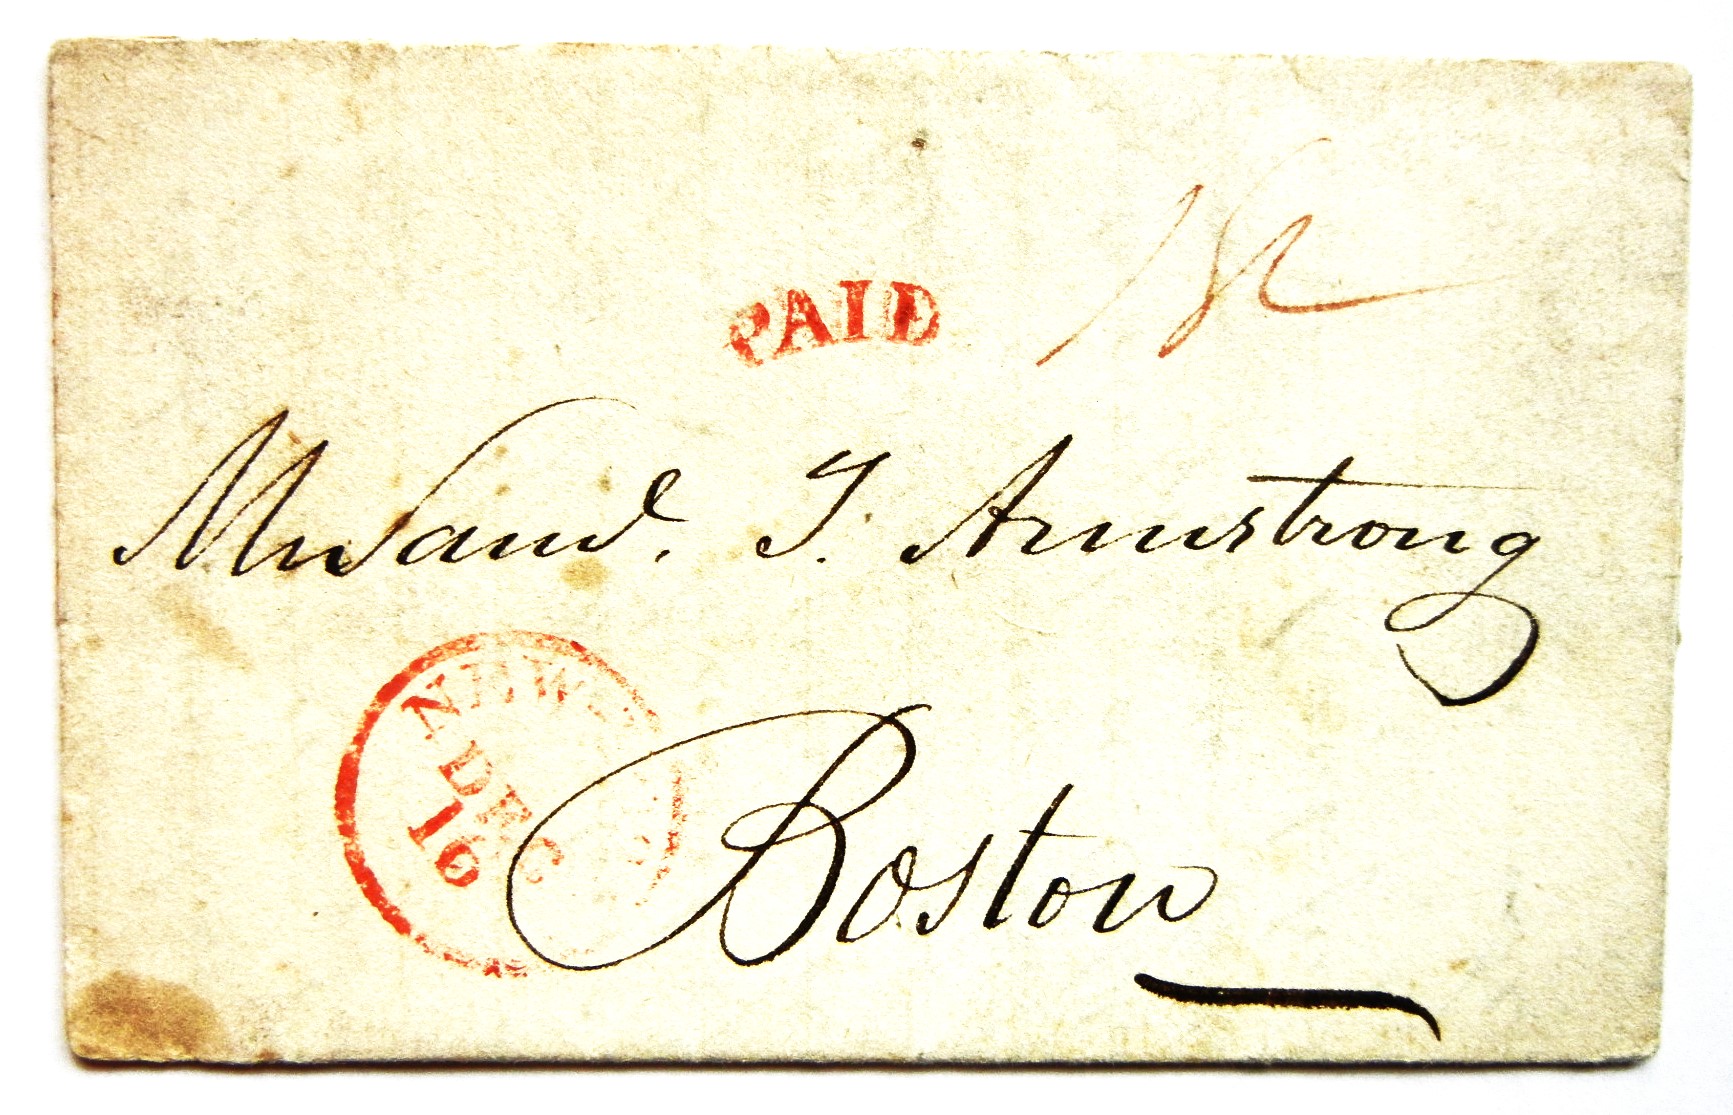 PAID
Mr Saml. T. Armstrong
NEW-Y
DEC
16
Boston